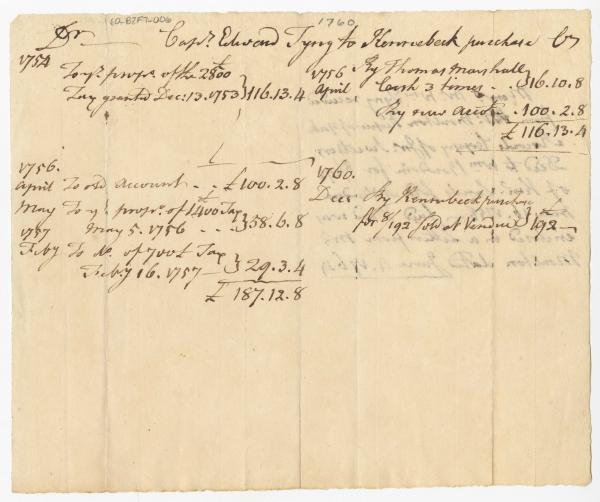 60-B2F7-006
1760
Dr Capt. Edward Tyng to Kennebeck purchase Cr
1754
To yr. propn. of the 2800 £
Tax granted Dec: 13. 1753 } 116.13.4
1756 By Thomas Marshall
April Cash 3 times - . } 16.10.8
By new accot. . 100.2.8
£ 116.13.4
1756.
April To old account - . - £ 100.2.8
May To yr. propn. of 1400 £ Tax
May 5. 1756 - - . } 58.6.8
1757
Feby To Do. of 700 £ Tax
Feby 16. 1757 - } 29.3.4
£ 187.12.8
1760.
Decr By Kennebeck purchase
for 8/192 sold at Vendue } £ 192 -